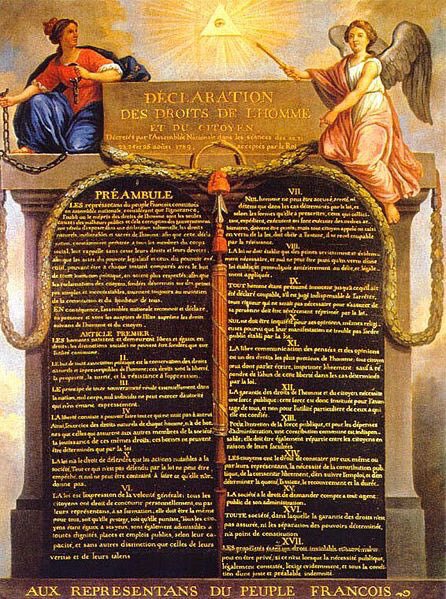 DÉCLARATION
DES DROITS DE L'HOMME
ET DU CITOYEN,
Décrétés par l'Assemblée Nationale dans les séances des 20, 21,
23, 24 et 26 août 1789, acceptés par le Roi
PRÉAMBULE
LES représentans du peuple François, constitués
en assemblée nationale, considérant que l'ignorance,
l'oubli ou le mépris des droits de l'homme sont les seules
causes des malheurs publics et de la corruption des gouvernemens
ont résolu d'exposer dans une déclaration solemnelle, les droits
naturels, inaliénables et sacrés de l'homme; afin que cette décla-
ration, constamment présente à tous les membres du corps
social, leur rappelle sans cesse leurs droits et leurs devoirs;
afin que les actes du pouvoir législatif et ceux du pouvoir exé-
cutif, pouvant être à chaque instant comparés avec le but
de toute institution politique, en soient plus respectés; afin que
les réclamations des citoyens, fondées désormais sur des princi-
pes simples et incontestables, tournent toujours au maintien
de la constitution et du bonheur de tous.
EN conséquence, l'assemblée nationale reconnoit et déclare,
en présence et sous les auspices de l'Être suprême les droits
suivans de l'homme et du citoyen.
ARTICLE PREMIER.
LES hommes naissent et demeurent libres et égaux en
droits; les distinctions sociales ne peuvent être fondées que sur
l'utilité commune.
II.
LE but de toute association politique est la conservation des droits
naturels et imprescriptibles de l'homme; ces droits sont la liberté,
la propriété, la sureté, et la résistance à l'oppression.
III.
LE principe de toute souveraineté réside essentiellement dans
la nation, nul corps, nul individu ne peut exercer d'autorité
qui n'en émane expressément.
IV.
LA liberté consiste à pouvoir faire tout ce qui ne nuit pas à autrui
Ainsi, l'exercice des droits naturels de chaque homme, n'a de bor-
nes que celles qui assurent aux autres membres de la société
la jouissance de ces mêmes droits; ces bornes ne peuvent
être déterminées que par la loi
V.
LA loi n'a le droit de défendre que les actions nuisibles à la
société. Tout ce qui n'est pas défendu par la loi ne peut être
empêché, et nul ne peut être contraint à faire ce qu'elle n'or-
donne pas.
VI.
LA loi est l'expression de la volonté générale; tous les
citoyens ont droit de concourir personnellement, ou par
leurs représentans, à sa formation; elle doit être la même
pour tous, soit qu'elle protege, soit qu'elle punisse. Tous les ci-
toyens étant égaux à ses yeux, sont également admissibles à
toutes dignités, places et emplois publics, selon leur ca-
pacité, et sans autres distinctions que celles de leurs
vertus et de leurs talens.
VII.
NUL homme ne peut être accusé, arrêté ni
détenu que dans les cas déterminés par la loi, et
selon les formes qu'elle a prescrites, ceux qui sollici-
tent, expédient, exécutent ou font exécuter des ordres ar-
bitraires, doivent être punis; mais tout citoyen appelé ou saisi
en vertu de la loi, doit obéir à l'instant, il se rend coupable
par la résistance.
VIII.
LA loi ne doit établir que des peines strictement et évidem-
ment nécessaires, et nul ne peut être puni qu'en vertu d'une
loi établie et promulguée antérieurement au délit, et légale-
ment appliquée.
IX.
TOUT homme étant présumé innocent jusqu'à ce qu'il ait
été déclaré coupable, s'il est jugé indispensable de l'arrêter,
toute rigueur qui ne serait pas nécessaire pour s'assurer de
sa personne doit être sévèrement réprimée par la loi.
X.
NUL ne doit être inquiété pour ses opinions, mêmes religi-
euses pourvu que leur manifestation ne trouble pas l'ordre
public établi par la loi.
XI.
LA libre communication des pensées et des opinions
est un des droits les plus précieux de l'homme; tout citoyen
peut donc parler, écrire, imprimer librement, sauf à ré-
pondre de l'abus de cette liberté dans les cas déterminés
par la loi.
XII.
LA garantie des droits de l'homme et du citoyen nécessite
une force publique; cette force est donc instituée pour l'avan-
tage de tous, et non pour l'utilité particuliere de ceux à qui
elle est confiée.
XIII.
POUR l'entretien de la force publique, et pour les dépenses
d'administration, une contribution commune est indispen-
sable; elle doit être également répartie entre les citoyens en
raison de leurs facultés.
XIV.
LES citoyens ont le droit de constater par eux même ou
par leurs représentans, la nécessité de la contribution pub-
lique, de la consentir librement, d'en suivre l'emploi, et d'en
déterminer la quotité, l'assiette, le recouvrement et la durée.
XV.
LA société a le droit de demander compte à tout agent
public de son administration.
XVI.
TOUTE société, dans laquelle la garantie des droits n'est
pas assurée, ni la séparation des pouvoirs déterminée,
n'a point de constitution.
XVII.
LES propriétés étant un droit inviolable et sacré, nul
ne peut en être privé, si ce n'est lorsque la nécessité publique,
légalement constatée, l'exige évidemment, et sous la condi-
tion d'une juste et préalable indemnité.
AUX REPRESENTANS DU PEUPLE FRANCOIS